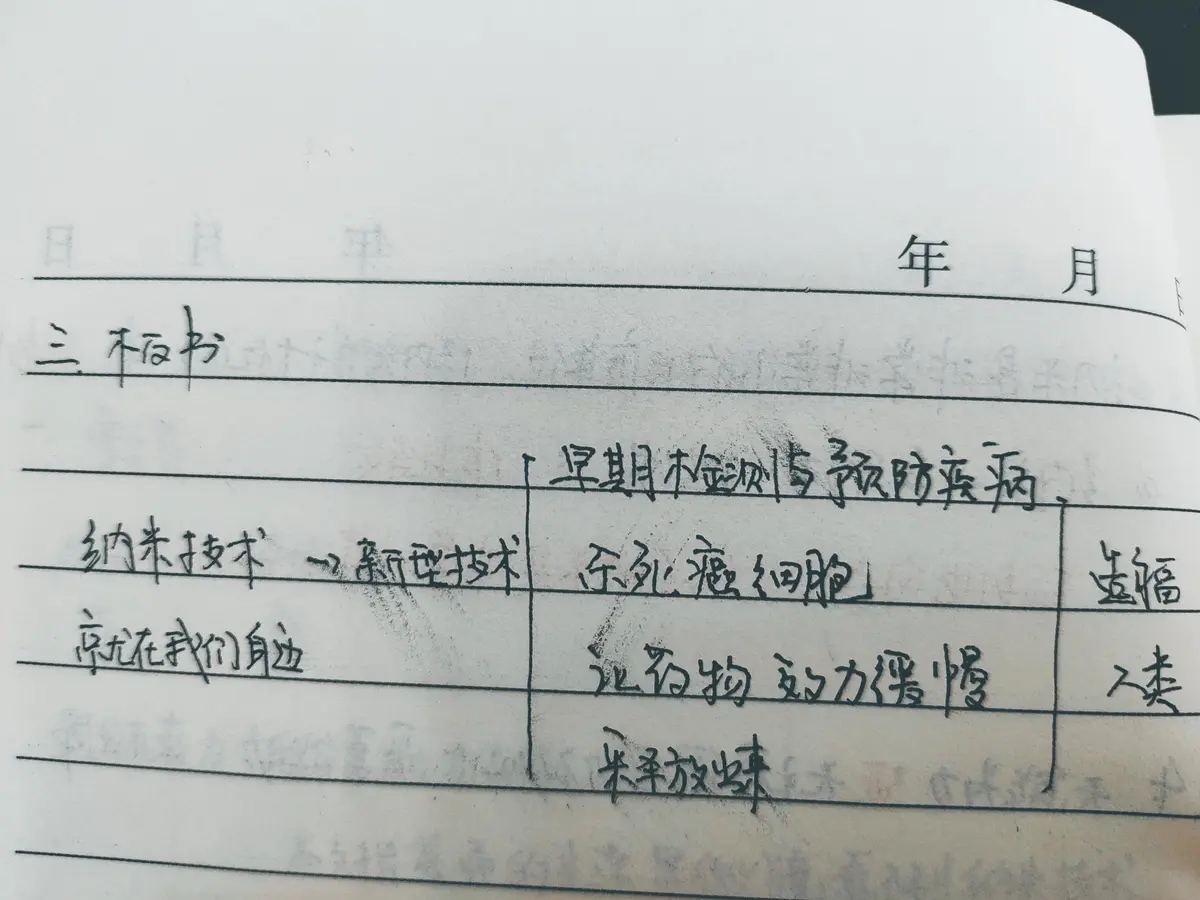 年 月
三、板书
早期检测与预防疾病
纳米技术 → 新型技术 杀死癌细胞 造福
就在我们身边 让药物效力缓慢 人类
释放出来